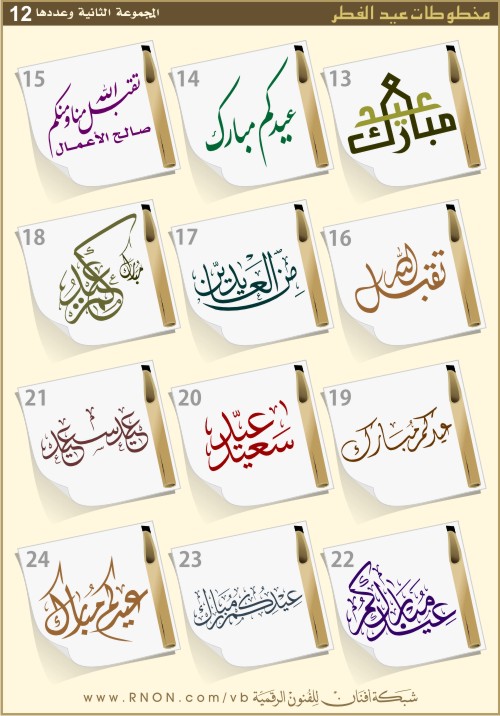 مخطوطات عيد الفطر
المجموعة الثانية وعددها 12
13
عيد
مبارك
14
عيدكم مبارك
15
تقبل الله منا ومنكم
صالح الأعمال
16
تقبل الله
17
من العايدين
18
عيدكم مبارك
19
عيدكم مبارك
20
عيد
سعيد
21
عيد سعيد
22
عيدكم مبارك
23
عيدكم مبارك
24
عيدكم مبارك
شبكة افنان للفنون الرقمية
www.RNON.com/vb